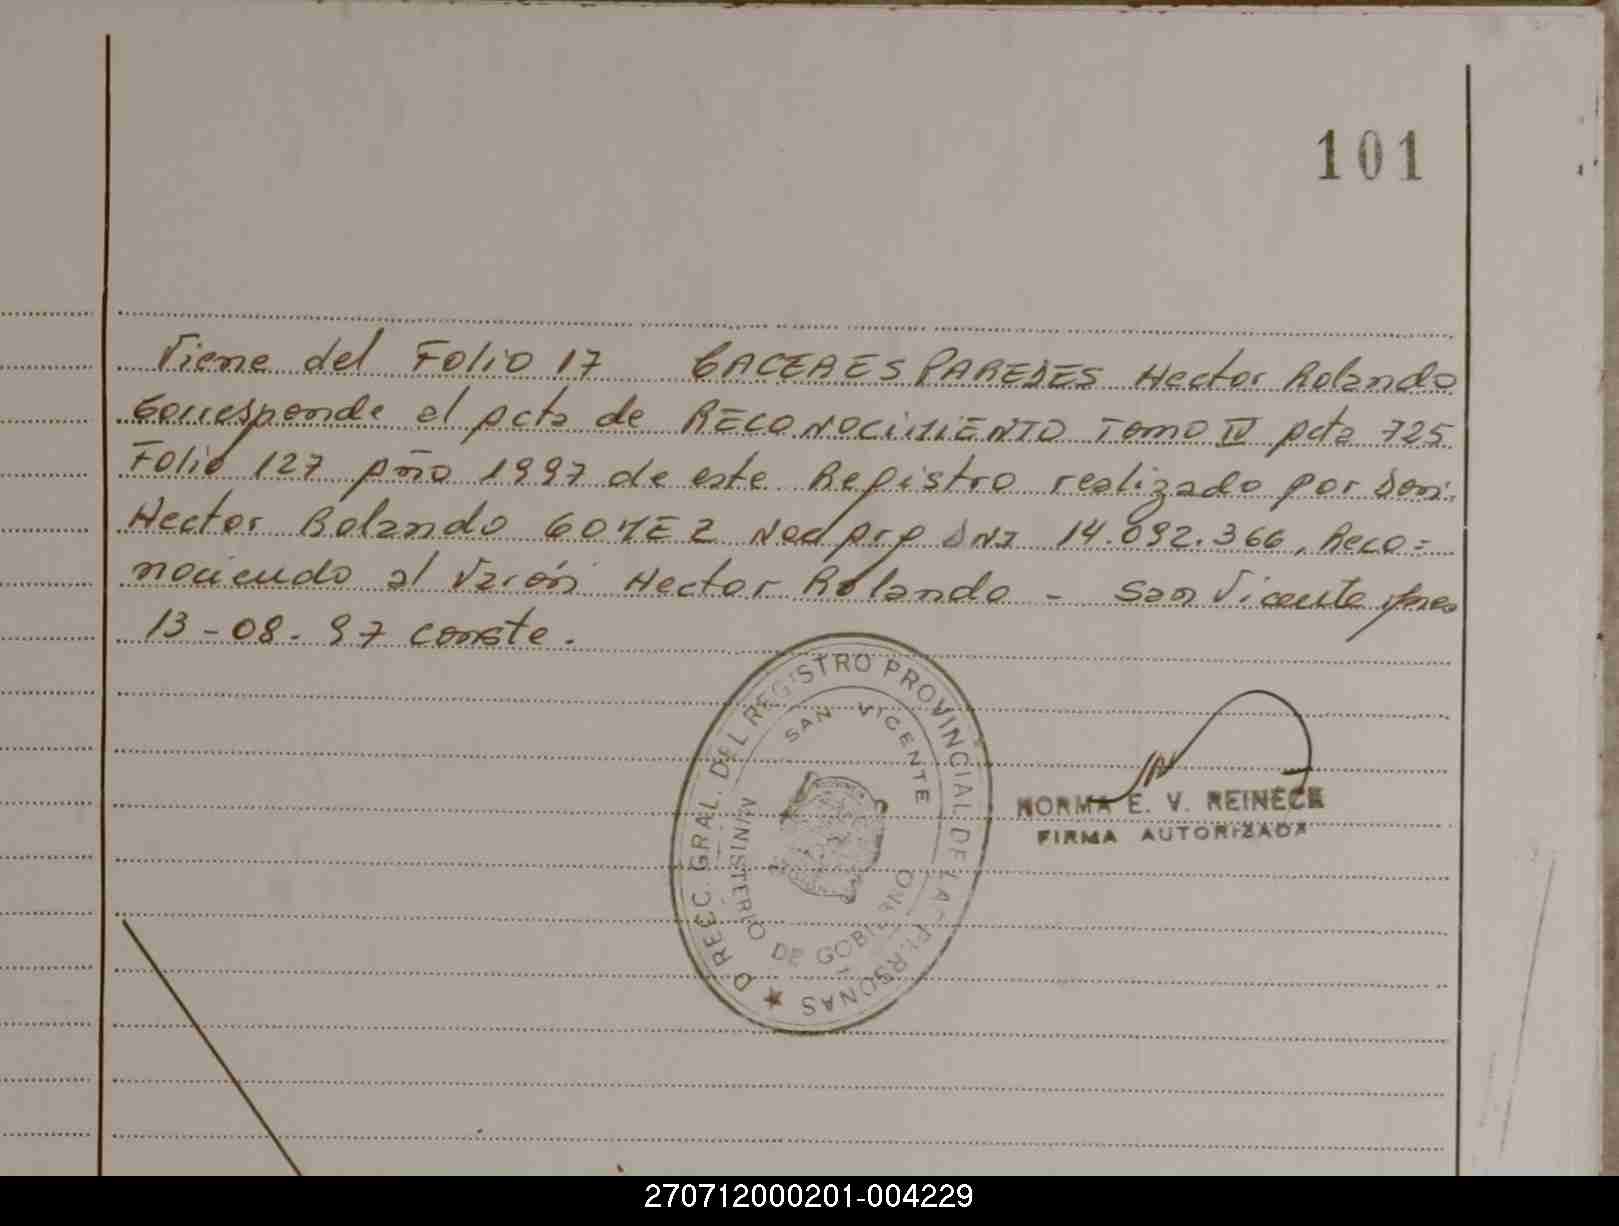 101
Viene del Folio 17 CACERAES PAREDES Hector Rolando
Corresponde al Acta de RECONOCIMIENTO Tomo IV Acta 725
Folio 127 Año 1997 de este Registro realizado por Don:
Hector Rolando GOMEZ Nac Arg DNI 14.092.366, Reco=
nociendo al Varón Hector Rolando - San Vicente Mnes
13-08-97 conste.
DIRECC. GRAL. DEL REGISTRO PROVINCIAL DE LAS PERSONAS
SAN VICENTE
MINISTERIO DE GOBIERNO
NORMA E. V. REINECK
FIRMA AUTORIZADA
270712000201-004229